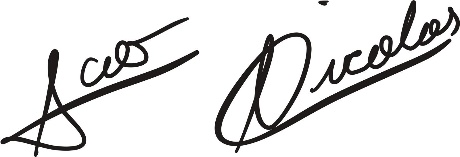 Sao Nicolas